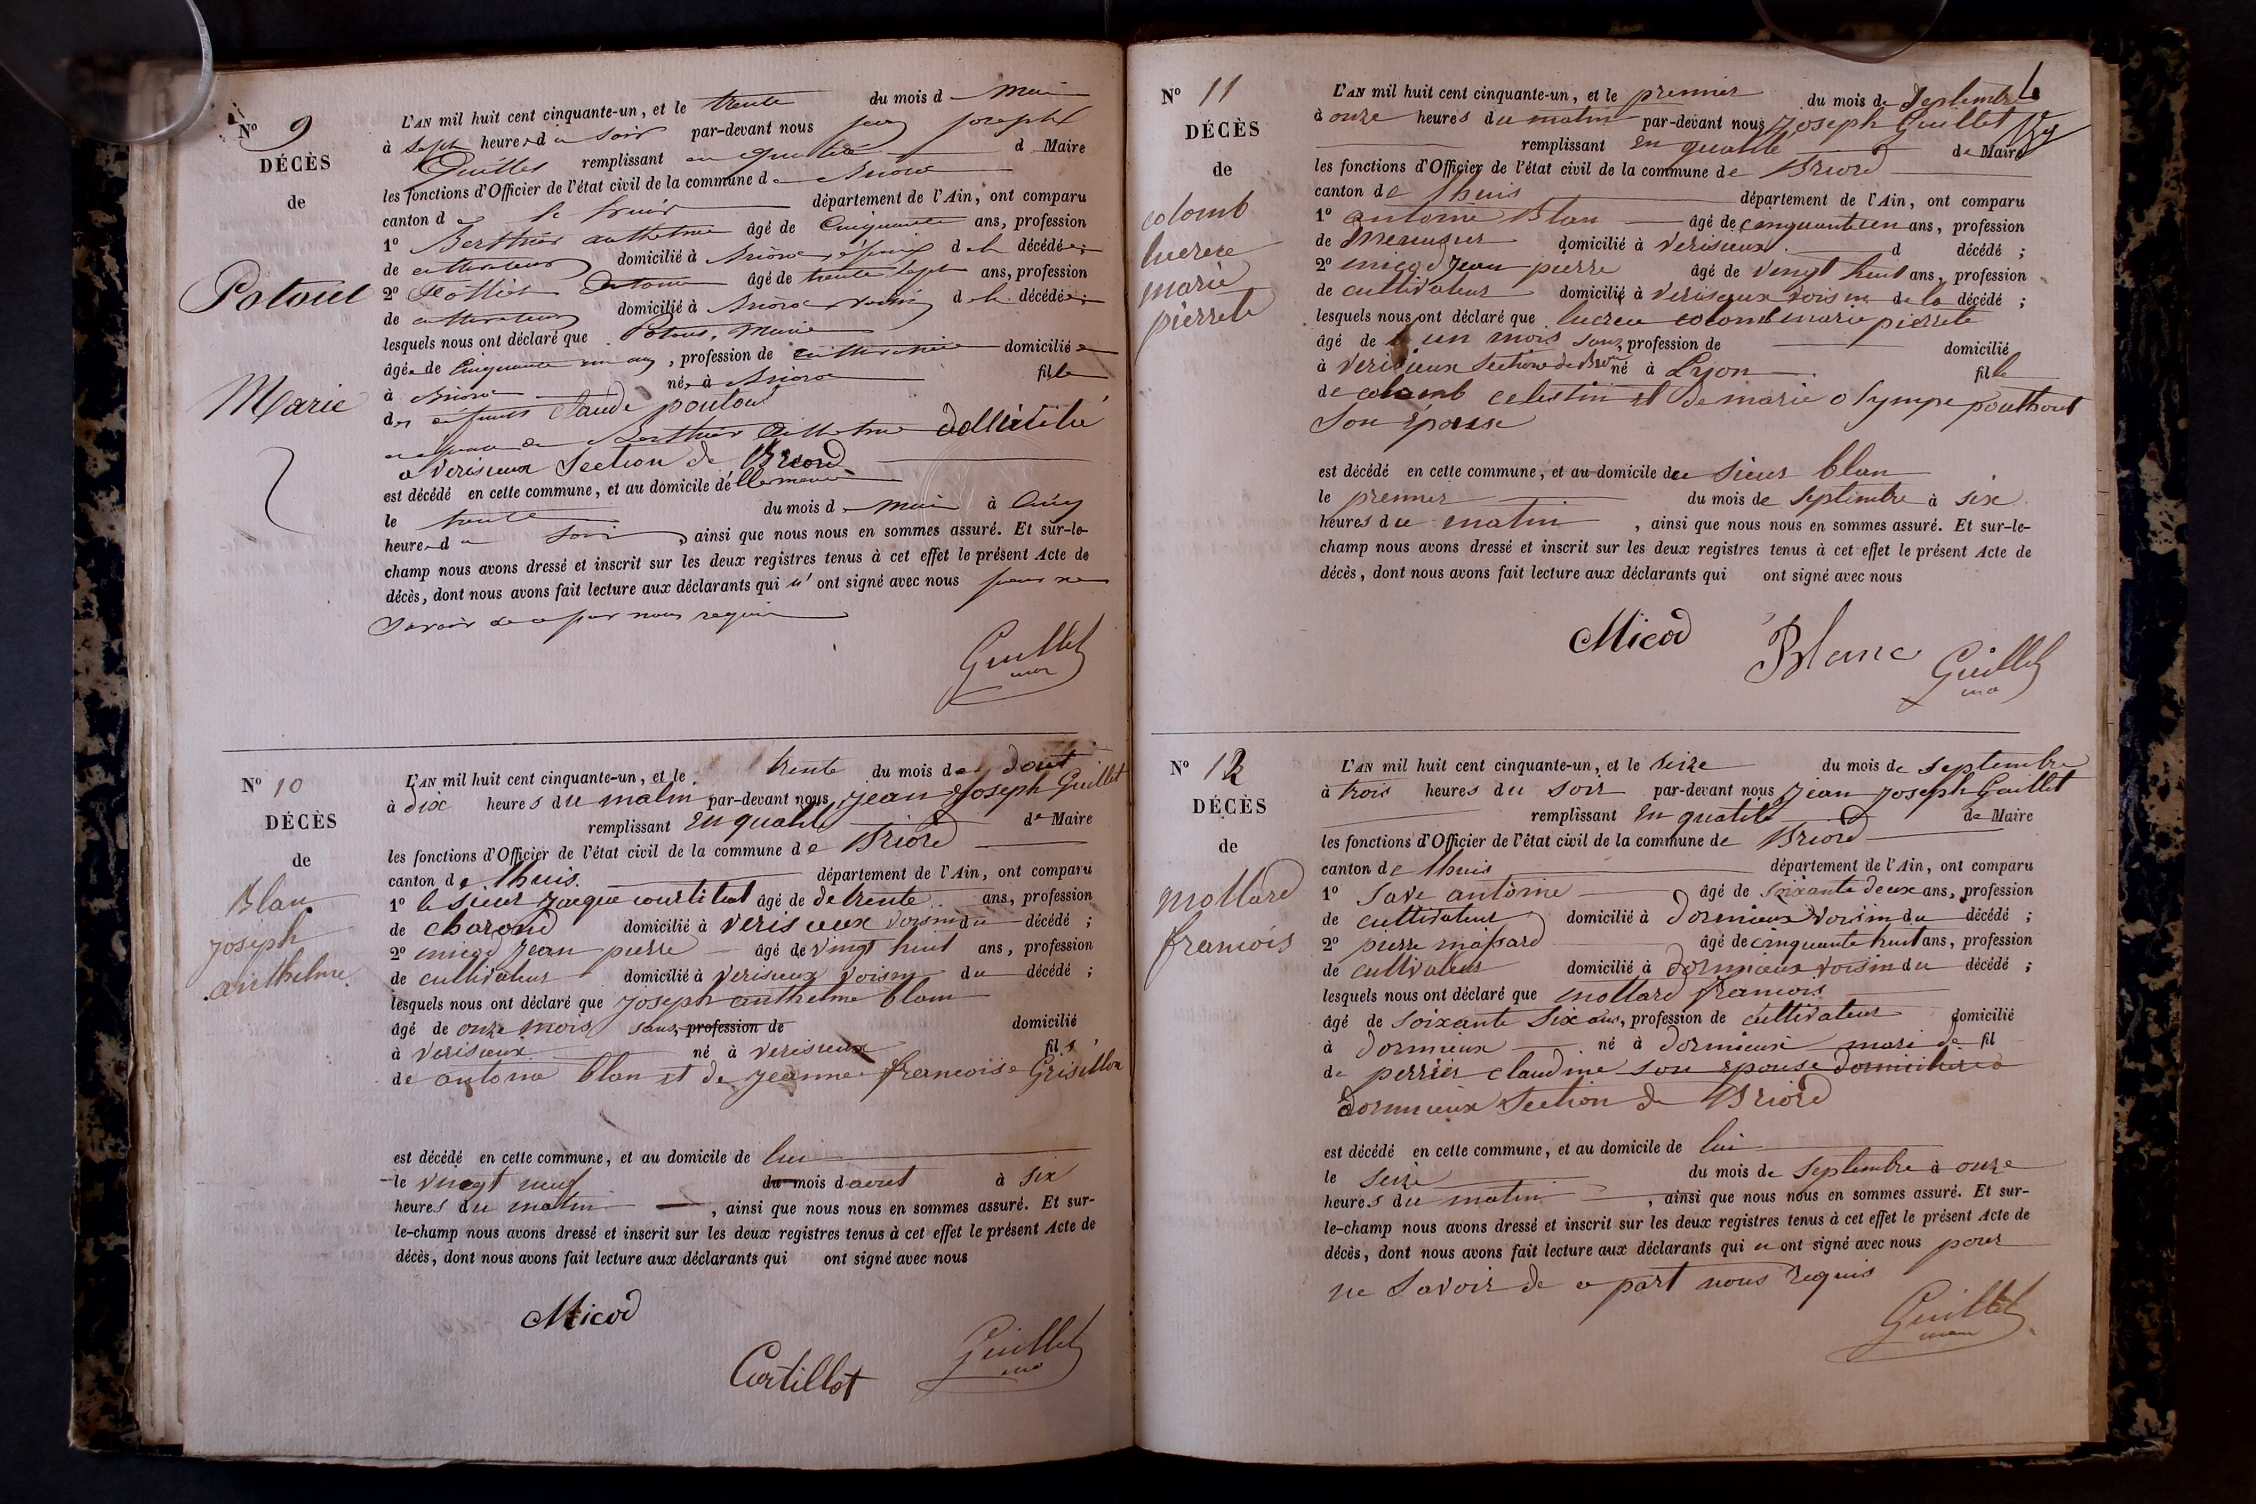 N° 9
DÉCÈS
de
Potout
Marie
L'AN mil huit cent cinquante-un, et le trente du mois d mai
à sept heures du soir par-devant nous jean joseph
Guillet remplissant en qualité d Maire
les fonctions d'Officier de l'état civil de la commune de Briord
canton d département de l'Ain, ont comparu
1° Berthier anthelme âgé de Cinquante ans, profession
de cultivateur domicilié à Briord époux de la décédée;
2° antoine âgé de trente sept ans, profession
de cultivateur domicilié à Briord voisin de la décédée;
lesquels nous ont déclaré que Potout Marie
âgée de Cinquante un ans, profession de domiciliée
à Briord née à Briord fille
des défunts Claude poutout
Berthier anthelme domicilié
a Veriseux Section de Briord
est décédé en cette commune, et au domicile d'elle meme
le trente du mois de mai à Cinq
heures du soir, ainsi que nous nous en sommes assuré. Et sur-le-
champ nous avons dressé et inscrit sur les deux registres tenus à cet effet le présent Acte de
décès, dont nous avons fait lecture aux déclarants qui n'ont signé avec nous pour ne
savoir de ce par nous requis
Guillet
N° 10
DÉCÈS
de
Blan
joseph
anthelme
L'AN mil huit cent cinquante-un, et le trente du mois de dout
à dix heures du matin par-devant nous jean joseph Guillet
remplissant En qualité de Maire
les fonctions d'Officier de l'état civil de la commune de Briord
canton de lhuis département de l'Ain, ont comparu
1° le sieur jacque courtilliat âgé de de trente ans, profession
de charond domicilié à veriseux voisin du décédé;
2° micod jean pierre âgé de vingt huit ans, profession
de cultivateur domicilié à veriseux voisin du décédé;
lesquels nous ont déclaré que joseph anthelme blam
âgé de onze mois sans, profession de domicilié
à veriseux né à veriseux fils,
de antoine blan et de jeanne francoise Grisillon
est décédé en cette commune, et au domicile de lui
le vingt neuf du mois d aout à six
heures du matin, ainsi que nous nous en sommes assuré. Et sur-
le-champ nous avons dressé et inscrit sur les deux registres tenus à cet effet le présent Acte de
décès, dont nous avons fait lecture aux déclarants qui ont signé avec nous
Micod
Curtillot
Guillet
N° 11
DÉCÈS
de
colomb
lucrece
marie
pierrete
L'AN mil huit cent cinquante-un, et le premier du mois de Septembre
à onze heures du matin par-devant nous joseph Guillet
remplissant En qualité de Maire
les fonctions d'Officier de l'état civil de la commune de Briord
canton de lhuis département de l'Ain, ont comparu
1° antoine Blan âgé de cinquante un ans, profession
de Menusier domicilié à veriseux d décédé;
2° micod jean pierre âgé de vingt huit ans, profession
de cultivateur domicilié à veriseux voisin de la décédé;
lesquels nous ont déclaré que lucrece colomb marie pierrete
âgé de un mois sans, profession de domicilié
à verisieux Section de Briord né à Lyon fille
de colomb celestin et de marie olympe pouthout
Son épouse
est décédé en cette commune, et au domicile du sieur blan
le premier du mois de septembre à six
heures du matin, ainsi que nous nous en sommes assuré. Et sur-le-
champ nous avons dressé et inscrit sur les deux registres tenus à cet effet le présent Acte de
décès, dont nous avons fait lecture aux déclarants qui ont signé avec nous
Micod Blanc Guillet
N° 12
DÉCÈS
de
mollard
francois
L'AN mil huit cent cinquante-un, et le seize du mois de septembre
à trois heures du soir par-devant nous jean joseph Guillet
remplissant En qualité de Maire
les fonctions d'Officier de l'état civil de la commune de Briord
canton de lhuis département de l'Ain, ont comparu
1° save antoine âgé de soixante deux ans, profession
de cultivateur domicilié à dornieux voisin du décédé;
2° pierre massard âgé de cinquante huit ans, profession
de cultivateur domicilié à dornieux voisin du décédé;
lesquels nous ont déclaré que mollard francois
âgé de soixante six ans, profession de cultivateur domicilié
à dornieux né à dornieux mari de fil
de perrier claudine son epouse domiciliers a
dornieux Section de Briord
est décédé en cette commune, et au domicile de lui
le seize du mois de septembre à onze
heures du matin, ainsi que nous nous en sommes assuré. Et sur-
le-champ nous avons dressé et inscrit sur les deux registres tenus à cet effet le présent Acte de
décès, dont nous avons fait lecture aux déclarants qui n ont signé avec nous pour
ne savoir de ce part nous requis
Guillet